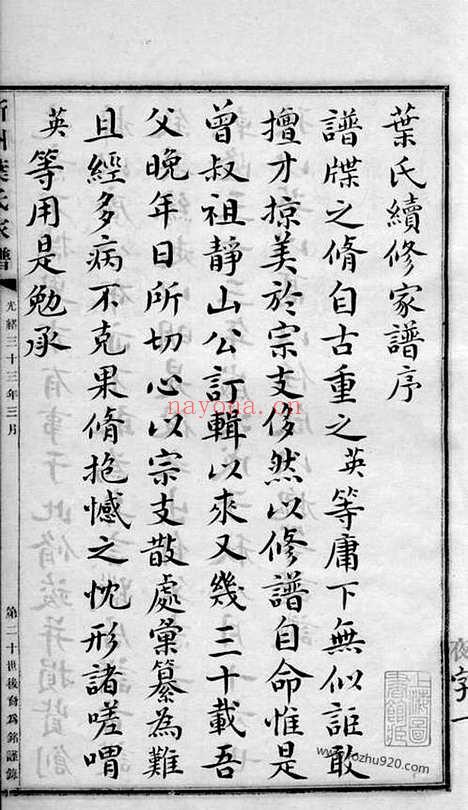 葉氏續修家譜序
譜牒之脩自古重之英等庸下無似詎敢
擅才掠美於宗支侈然以修譜自命惟是
曾叔祖靜山公訂輯以來又幾三十載吾
父晚年日所切心以宗支散處彙纂為難
且經多病不克果脩抱憾之忱形諸嗟喟
英等用是勉承
葉氏家譜
光緒三十三年三月
第二十世後裔為銘謹錄
上海圖書館藏
nayona.cn
www.fozhu920.com